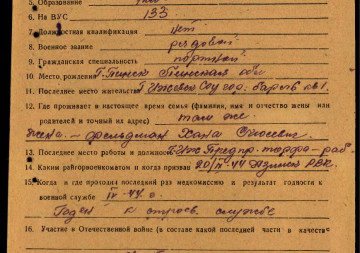 5. Образование
6. На ВУС 133
7. Должностная квалификация нет
8. Военное звание рядовой
9. Гражданская специальность портной
10. Место рождения г. Пинск Пинская обл
11. Последнее место жительства г. Ижевск Соц гор. кв 1.
12. Где проживает в настоящее время семья (фамилия, имя и отчество жены или
родителей и точный их адрес) там же
жена – Фельдман Хана
13. Последнее место работы и должность г. Иж. предпр. торфа – раб
14. Каким райгорвоенкоматом и когда призван 20/IV-44 Азинск РВК.
15. Когда и где проходил последний раз медкомиссию и результат годности к
военной службе IV-44 г.
Годен к строев. службе
16. Участие в Отечественной войне (в составе какой последней части в качест-